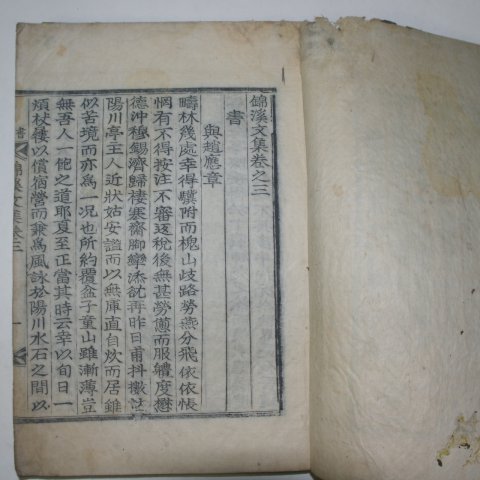 錦溪文集卷之三
書
與趙應章
疇林幾處幸得驥附而槐山歧路勞燕分飛依依悵
惘有不得按注不審返稅後無甚勞憊而服軆度懋
德沖穆錫濟歸棲塞齋脚孿添
再昨日甫抖擻
陽川亭主人近狀姑安謐而以無庫直自炊而居雖
似苦境而亦爲一况也所約覆盆子童山雖漸薄豈
無吾人一飽之道耶夏至正當其時云幸以旬日一
煩杖屨以償宿營而兼爲風詠於陽川水石之間以
書
錦溪文集卷三
一